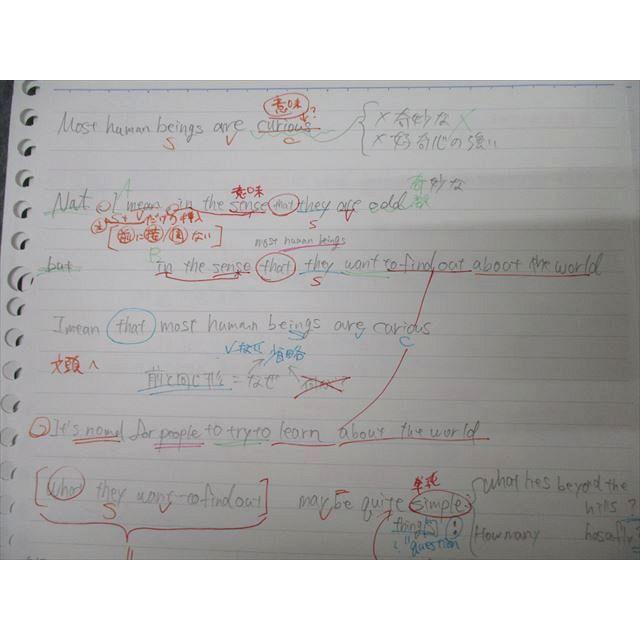 意味
Most human beings are curious ?
S V C
× 奇妙な
× 好奇心の強い
A 意味 奇妙な
Not I mean in the sense that they are odd
S V だけの挿入 S V
前に ない
B most human beings
but in the sense that they want to find out about the world
S
I mean that most human beings are curious
S V C
文頭へ 省略
前と同じ形 = なぜ
It's normal for people to try to learn about the world
単純
[what they want to find out] may be quite simple what lies beyond the
S V V hills?
thing
? question How many